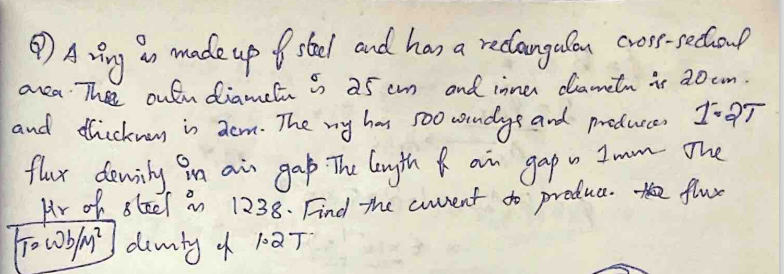 Q) A ring is made up of steel and has a rectangular cross-sectional
area. The outer diameter is 25 cm and inner diameter is 20 cm.
and thickness is 2cm. The ring has 500 windings and produces 1.2T
flux density in air gap. The length of air gap is 1mm. The
μr of steel is 1238. Find the current to produce the flux
T = Wb/M² density of 1.2 T.